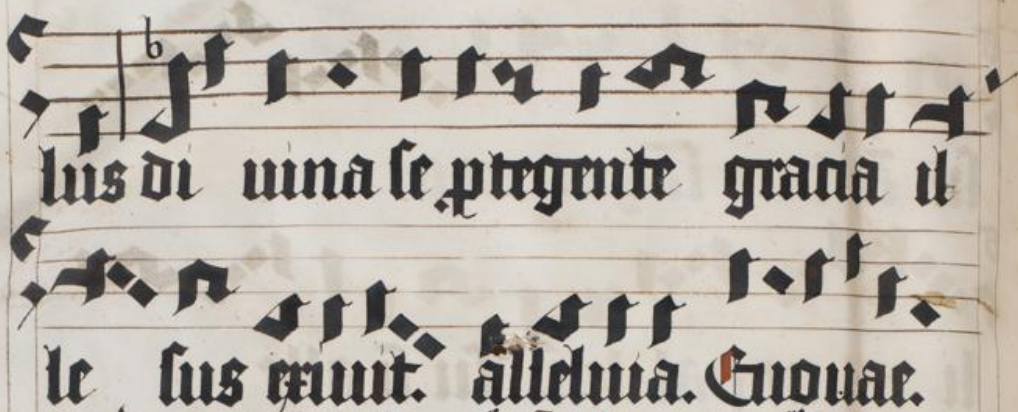 luis di uina se ptegente gracia il
le sus exiuit. alleluia. Euouae.